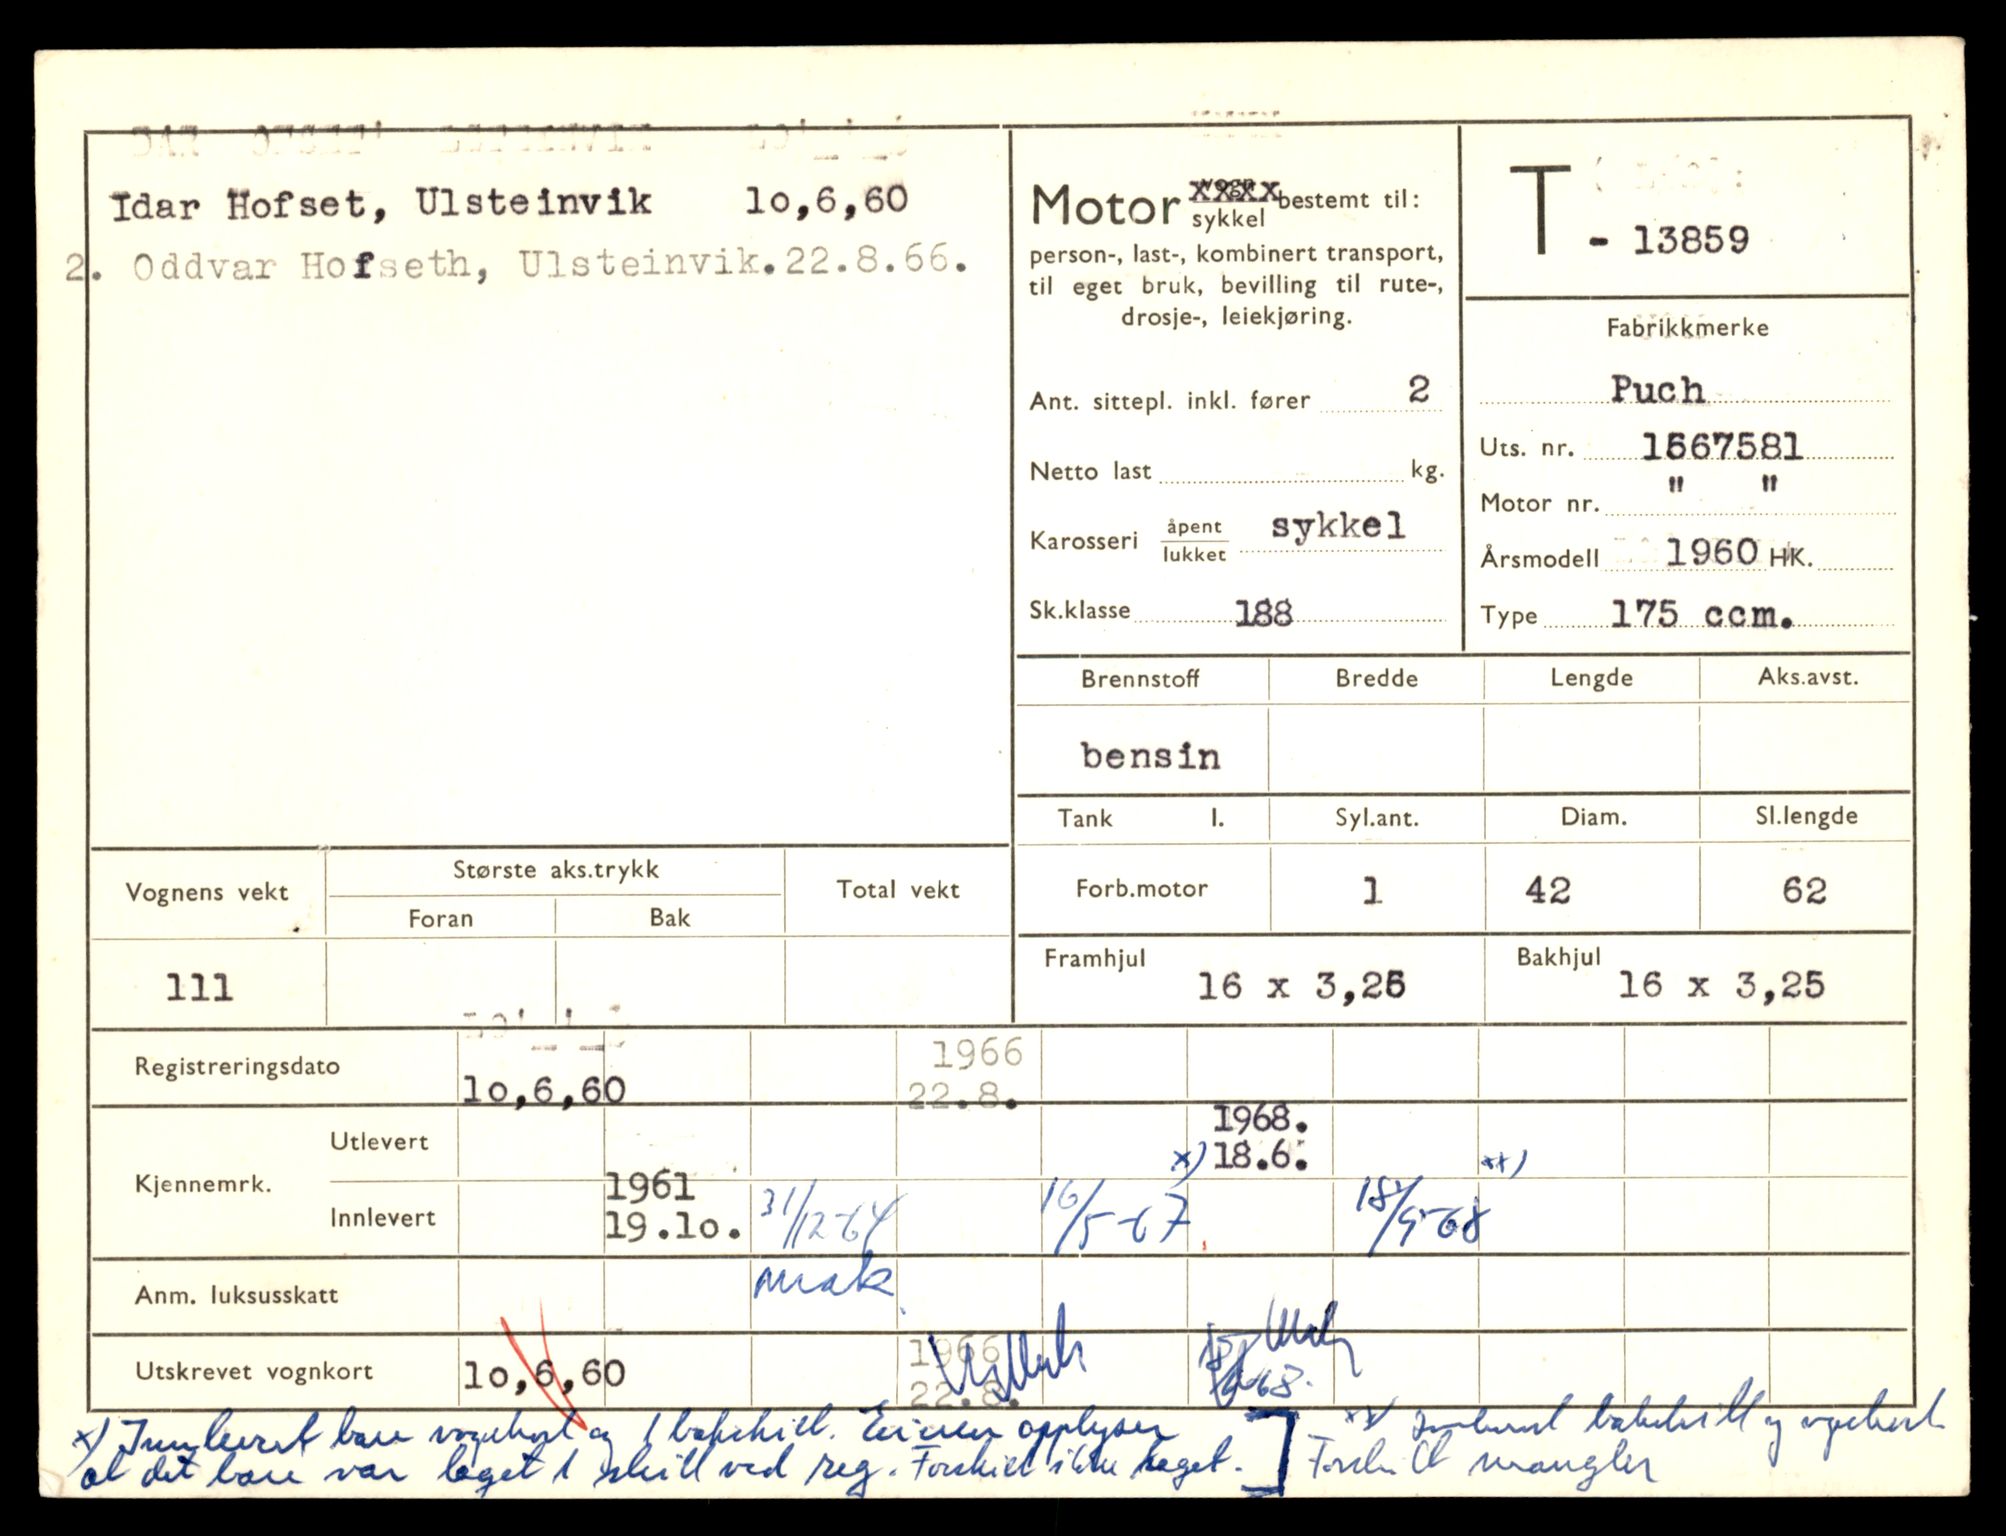 Idar Hofset, Ulsteinvik 10,6,60
2. Oddvar Hofseth, Ulsteinvik.22.8.66.
Motor vogn xxxx sykkel bestemt til:
person-, last-, kombinert transport,
til eget bruk, bevilling til rute-,
drosje-, leiekjøring.
Ant. sittepl. inkl. fører 2
Netto last kg.
Karosseri åpent lukket sykkel
Sk.klasse 188
T - 13859
Fabrikkmerke
Puch
Uts. nr. 1567581
Motor nr. " "
Årsmodell 1960 HK.
Type 175 ccm.
Brennstoff Bredde Lengde Aks.avst.
bensin
Tank l. Syl.ant. Diam. Sl.lengde
Forb.motor 1 42 62
Framhjul 16 x 3,25 Bakhjul 16 x 3,25
Vognens vekt Største aks.trykk Total vekt
Foran Bak
111
Registreringsdato 10,6,60 1966 22.8.
Kjennemrk. Utlevert 1968. x) 18.6. xx)
Innlevert 1961 19.10. 31/12-64 16/5-67 18/9-68
Anm. luksusskatt mak
Utskrevet vognkort 10,6,60 1966 22.8.
x) Innlevert bare vognkort og 1 bakskilt. Eieren opplyser
at det bare var laget 1 skilt ved reg. Forskilt ikke laget.
xx) Innlevert bakskilt og vognkort
Forskilt mangler